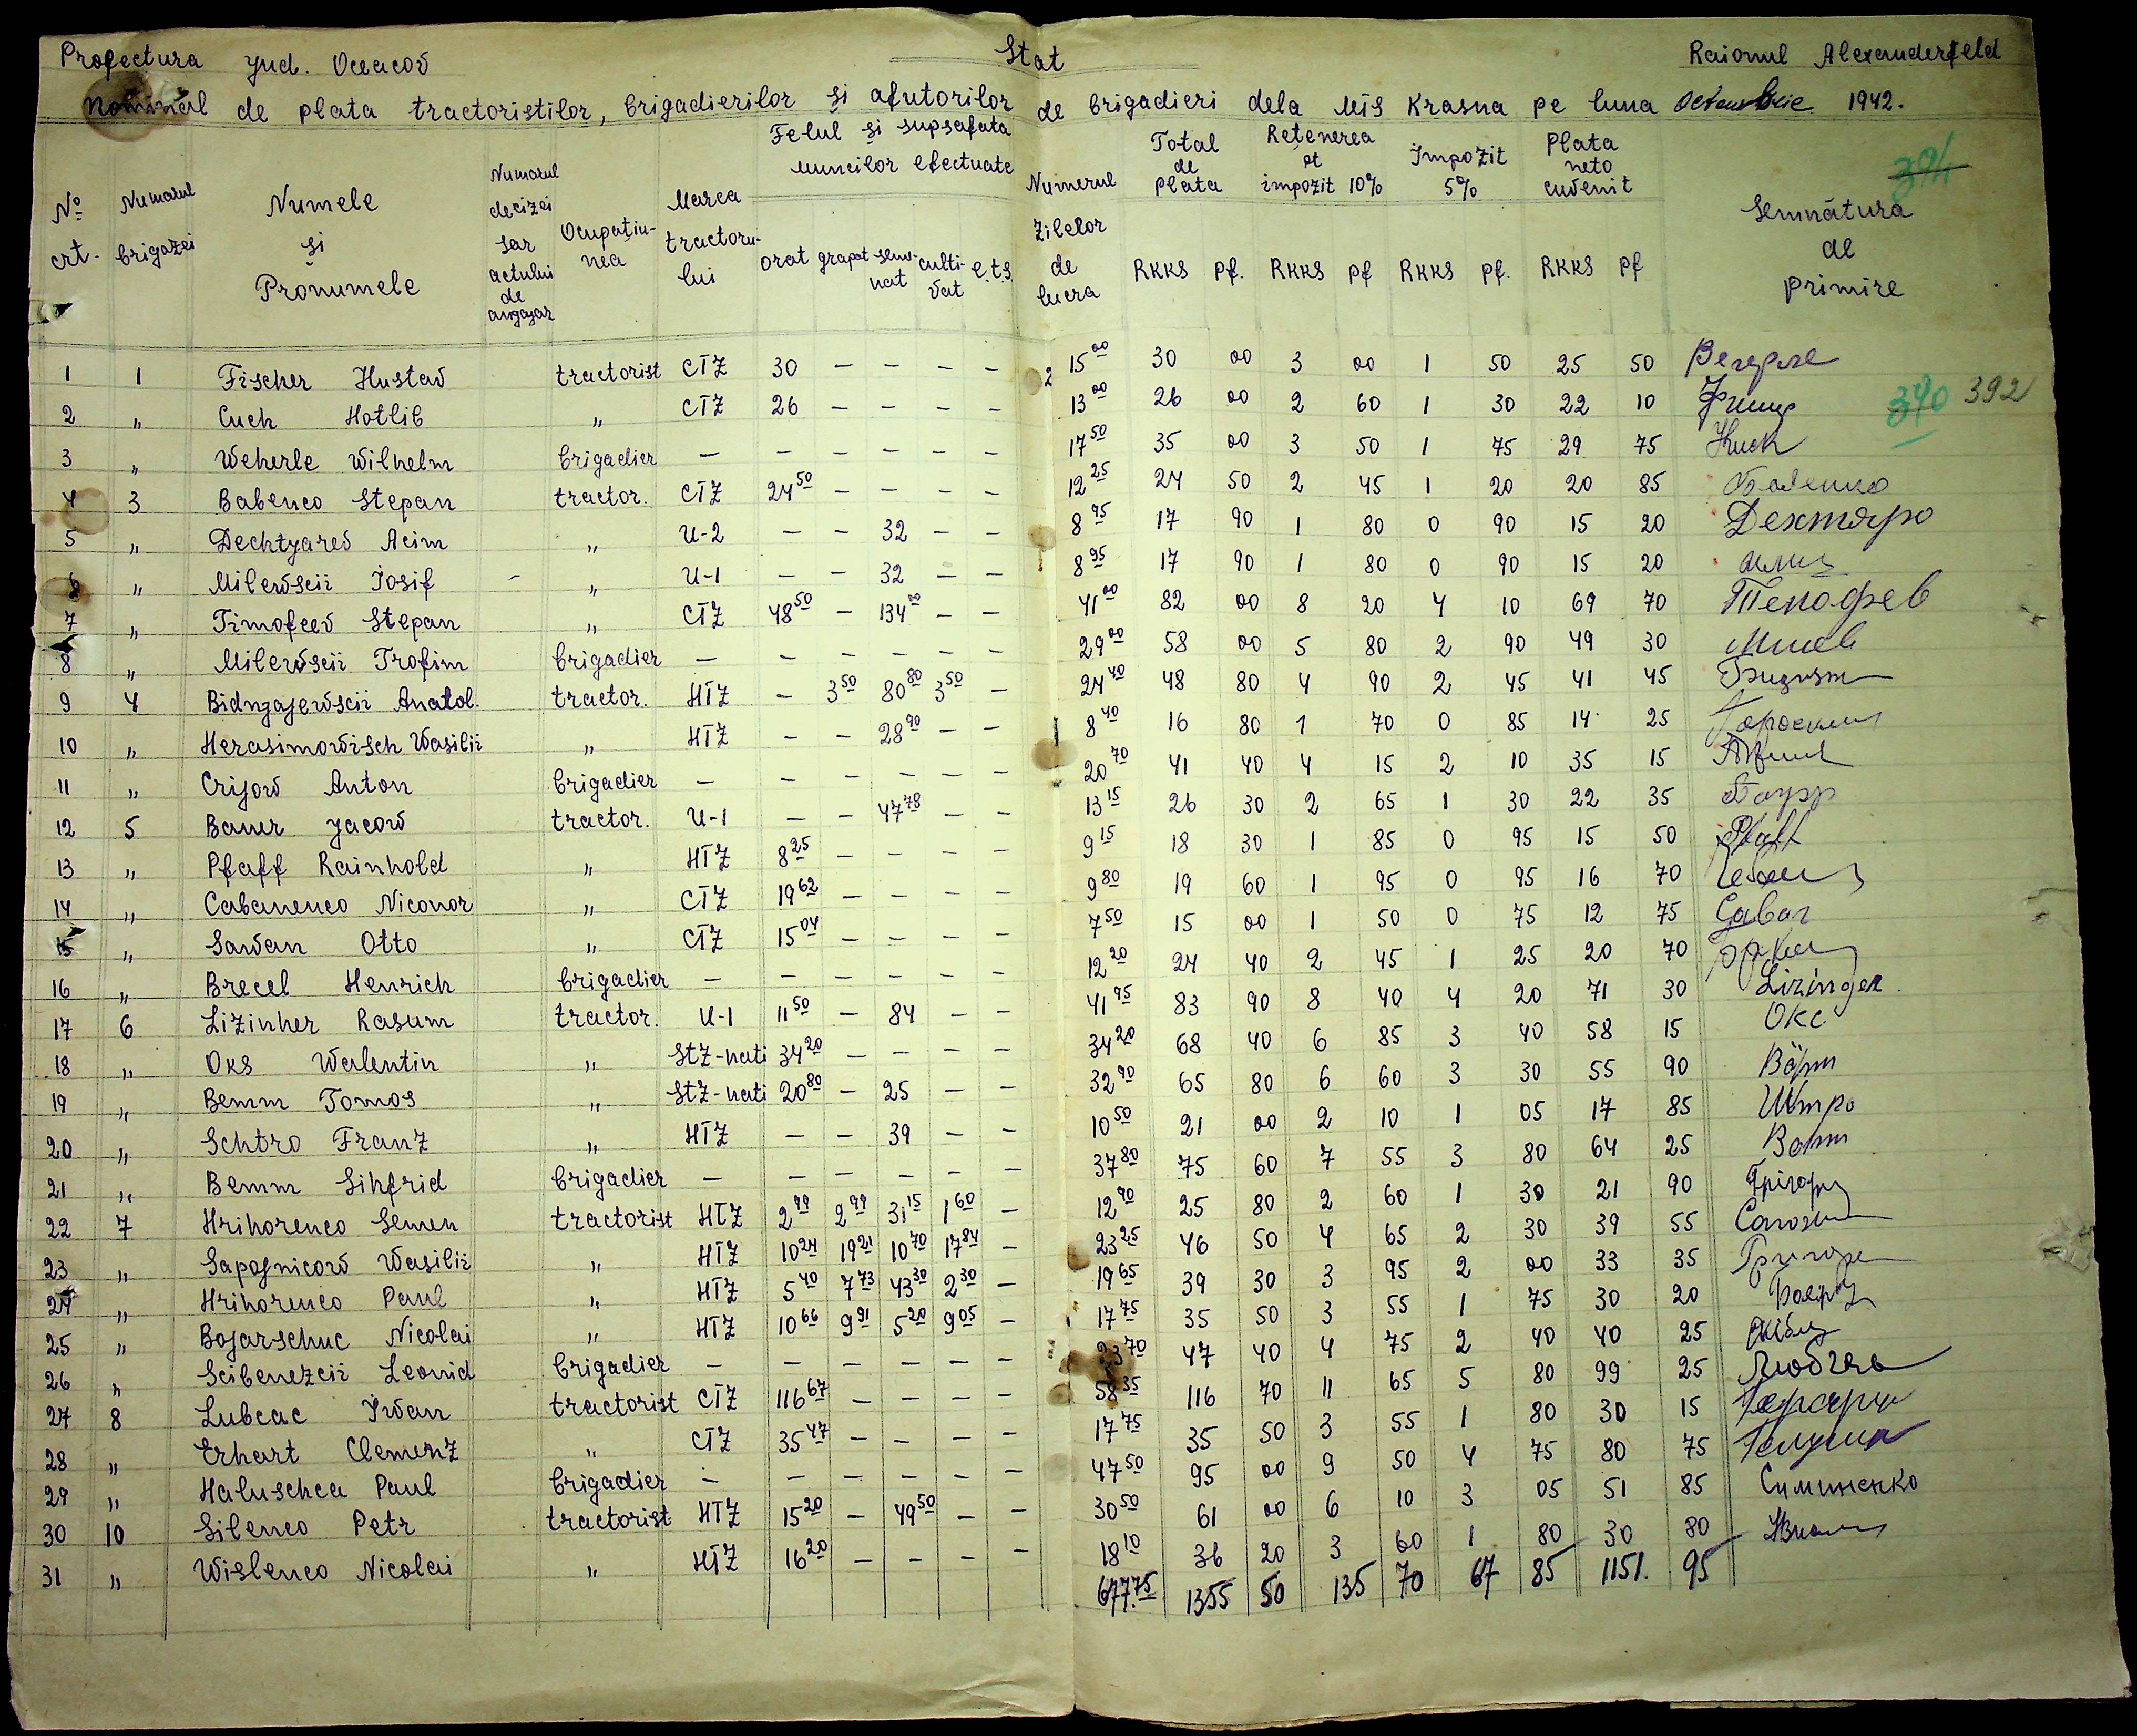 Prefectura jud. Oceacov Stat Raionul Alexanderfeld
Nominal de plata tractoristilor, brigadierilor și ajutorilor de brigadieri dela MiS Krasna pe luna Octombrie 1942.
394
№ crt. Numarul brigazei Numele și Pronumele Numarul decizei sar actului de angajar Ocupațiunea Marca tractorului Felul și supsafata muncilor efectuate Numerul zilelor de lucra Total de plata Rețenerea pt impozit 10% Impozit 5% Plata neto cuvenit Semnătura de primire
orat grapat semnat cultivat e.t.s. RKKS Pf. RKKS Pf RKKS Pf. RKKS Pf
1 1 Fischer Hustav tractorist CTZ 30 — — — — 15 00 30 00 3 00 1 50 25 50
2 " Cuch Hotlib " CTZ 26 — — — — 13 00 26 00 2 60 1 30 22 10 390 392
3 " Weherle Wilhelm brigadier — — — — — — 17 50 35 00 3 50 1 75 29 75 Kuch
4 3 Babenco Stepan tractor. CTZ 24 50 — — — — 12 25 24 50 2 45 1 20 20 85
5 " Dechtyarev Acim " U-2 — — 32 — — 8 95 17 90 1 80 0 90 15 20 Дехтяро
6 " Milewscii Iosif " U-1 — — 32 — — 8 95 17 90 1 80 0 90 15 20
7 " Timofeev Stepan " CTZ 48 50 — 134 00 — — 41 00 82 00 8 20 4 10 69 70
8 " Milewscii Trofim brigadier — — — — — — 29 00 58 00 5 80 2 90 49 30
9 4 Bidngajewscii Anatol. tractor. HTZ — 3 50 80 80 3 50 — 24 40 48 80 4 90 2 45 41 45
10 " Herasimowisch Wasilii " HTZ — — 28 90 — — 8 40 16 80 1 70 0 85 14 25
11 " Crijow Anton brigadier — — — — — — 20 70 41 40 4 15 2 10 35 15
12 5 Bauer Jacow tractor. U-1 — — 47 78 — — 13 15 26 30 2 65 1 30 22 35
13 " Pfaff Rainhold " HTZ 8 25 — — — — 9 15 18 30 1 85 0 95 15 50 Pfaff
14 " Cabanenco Niconor " CTZ 19 62 — — — — 9 80 19 60 1 95 0 95 16 70
15 " Sawan Otto " CTZ 15 04 — — — — 7 50 15 00 1 50 0 75 12 75
16 " Brecel Henrich brigadier — — — — — — 12 20 24 40 2 45 1 25 20 70
17 6 Lizinher Rasum tractor. U-1 11 50 — 84 — — 41 95 83 90 8 40 4 20 71 30 Lizinger.
18 " Oks Walentin " StZ-nati 34 20 — — — — 34 20 68 40 6 85 3 40 58 15 Окс
19 " Bemm Tomos " StZ-nati 20 80 — 25 — — 32 90 65 80 6 60 3 30 55 90 Böhm
20 " Schtro Franz " HTZ — — 39 — — 10 50 21 00 2 10 1 05 17 85 Штро
21 " Bemm Sihfrid brigadier — — — — — — 37 80 75 60 7 55 3 80 64 25
22 7 Hrihorenco Semen tractorist HTZ 2 99 2 99 31 15 1 60 — 12 90 25 80 2 60 1 30 21 90
23 " Sapojnicow Wasilii " HTZ 10 24 19 21 10 70 17 84 — 23 25 46 50 4 65 2 30 39 55
24 " Hrihorenco Paul " HTZ 5 40 7 73 43 30 2 30 — 19 65 39 30 3 95 2 00 33 35
25 " Bojarschuc Nicolai " HTZ 10 66 9 91 5 20 9 05 — 17 75 35 50 3 55 1 75 30 20
26 " Scibenezcii Leonid brigadier — — — — — — 23 70 47 40 4 75 2 40 40 25
27 8 Lubcac Iwan tractorist CTZ 116 67 — — — — 58 35 116 70 11 65 5 80 99 25
28 " Erhart Clemenz " CTZ 35 47 — — — — 17 75 35 50 3 55 1 80 30 15
29 " Haluschca Paul brigadier — — — — — — 47 50 95 00 9 50 4 75 80 75
30 10 Silenco Petr tractorist HTZ 15 20 — 49 50 — — 30 50 61 00 6 10 3 05 51 85 Симиненко
31 " Wislenco Nicolai " HTZ 16 20 — — — — 18 10 36 20 3 60 1 80 30 80
677.75 1355 50 135 70 67 85 1151. 95